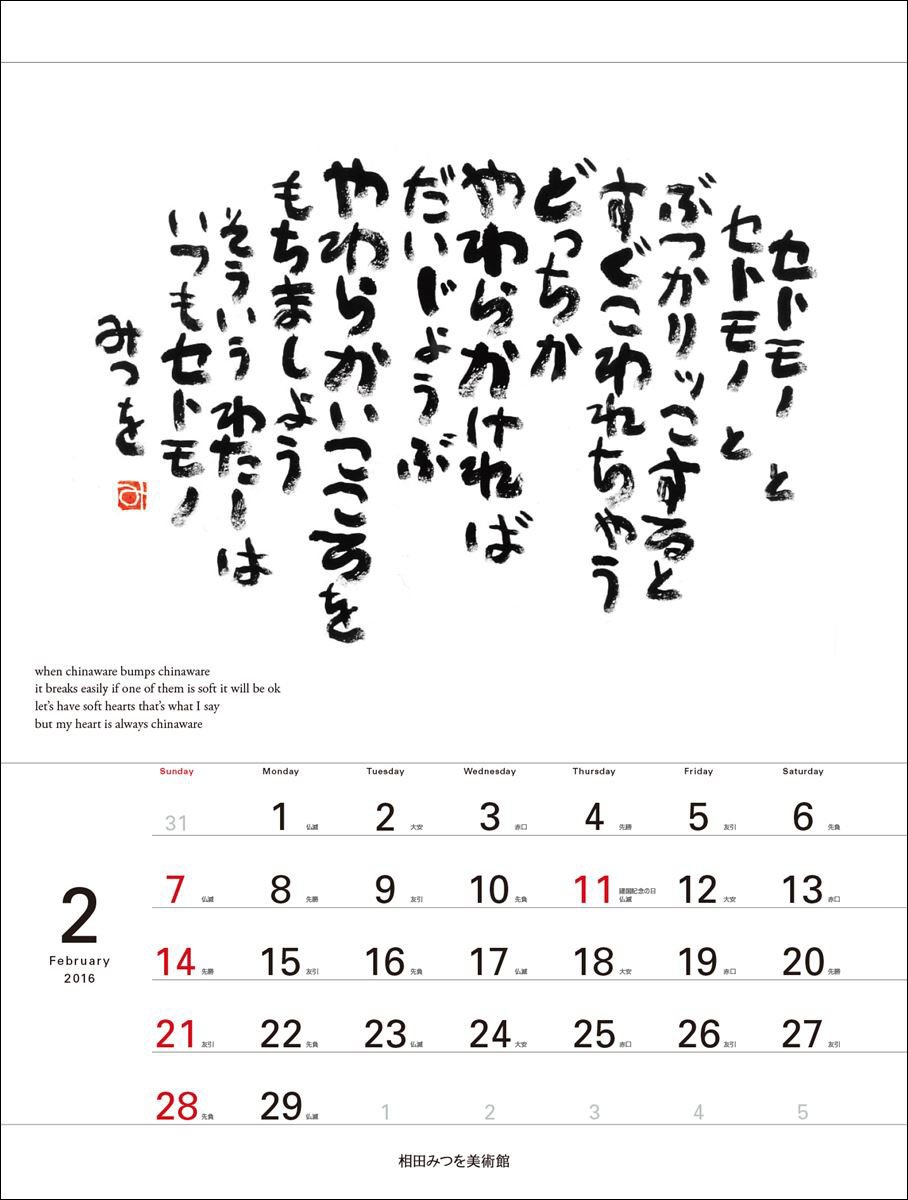 セトモノと
セトモノと
ぶつかりッこすると
すぐこわれちゃう
どっちか
やわらかければ
だいじょうぶ
やわらかいこころを
もちましょう
そういうわたしは
いつもセトモノ
みつを
when chinaware bumps chinaware
it breaks easily if one of them is soft it will be ok
let's have soft hearts that's what I say
but my heart is always chinaware
2
February
2016
Sunday Monday Tuesday Wednesday Thursday Friday Saturday
31 1 仏滅 2 大安 3 赤口 4 先勝 5 友引 6 先負
7 仏滅 8 先勝 9 友引 10 先負 11 建国記念の日 仏滅 12 大安 13 赤口
14 先勝 15 友引 16 先負 17 仏滅 18 大安 19 赤口 20 先勝
21 友引 22 先負 23 仏滅 24 大安 25 赤口 26 友引 27 友引
28 先負 29 仏滅 1 2 3 4 5
相田みつを美術館